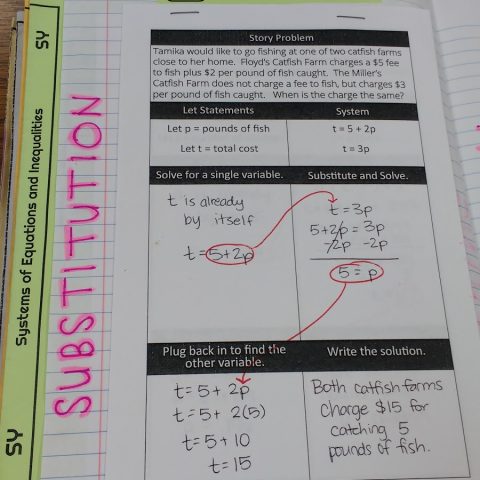 SY
Systems of Equations and Inequalities
SY
SUBSTITUTION
Story Problem
Tamika would like to go fishing at one of two catfish farms
close to her home. Floyd's Catfish Farm charges a $5 fee
to fish plus $2 per pound of fish caught. The Miller's
Catfish Farm does not charge a fee to fish, but charges $3
per pound of fish caught. When is the charge the same?
Let Statements
Let p = pounds of fish
Let t = total cost
System
t = 5 + 2p
t = 3p
Solve for a single variable.
t is already
by itself
t = 5+2p
Substitute and Solve.
t = 3p
5+2p = 3p
-2p -2p
5 = p
Plug back in to find the
other variable.
t = 5 + 2p
t = 5 + 2(5)
t = 5 + 10
t = 15
Write the solution.
Both catfish farms
charge $15 for
catching 5
pounds of fish.